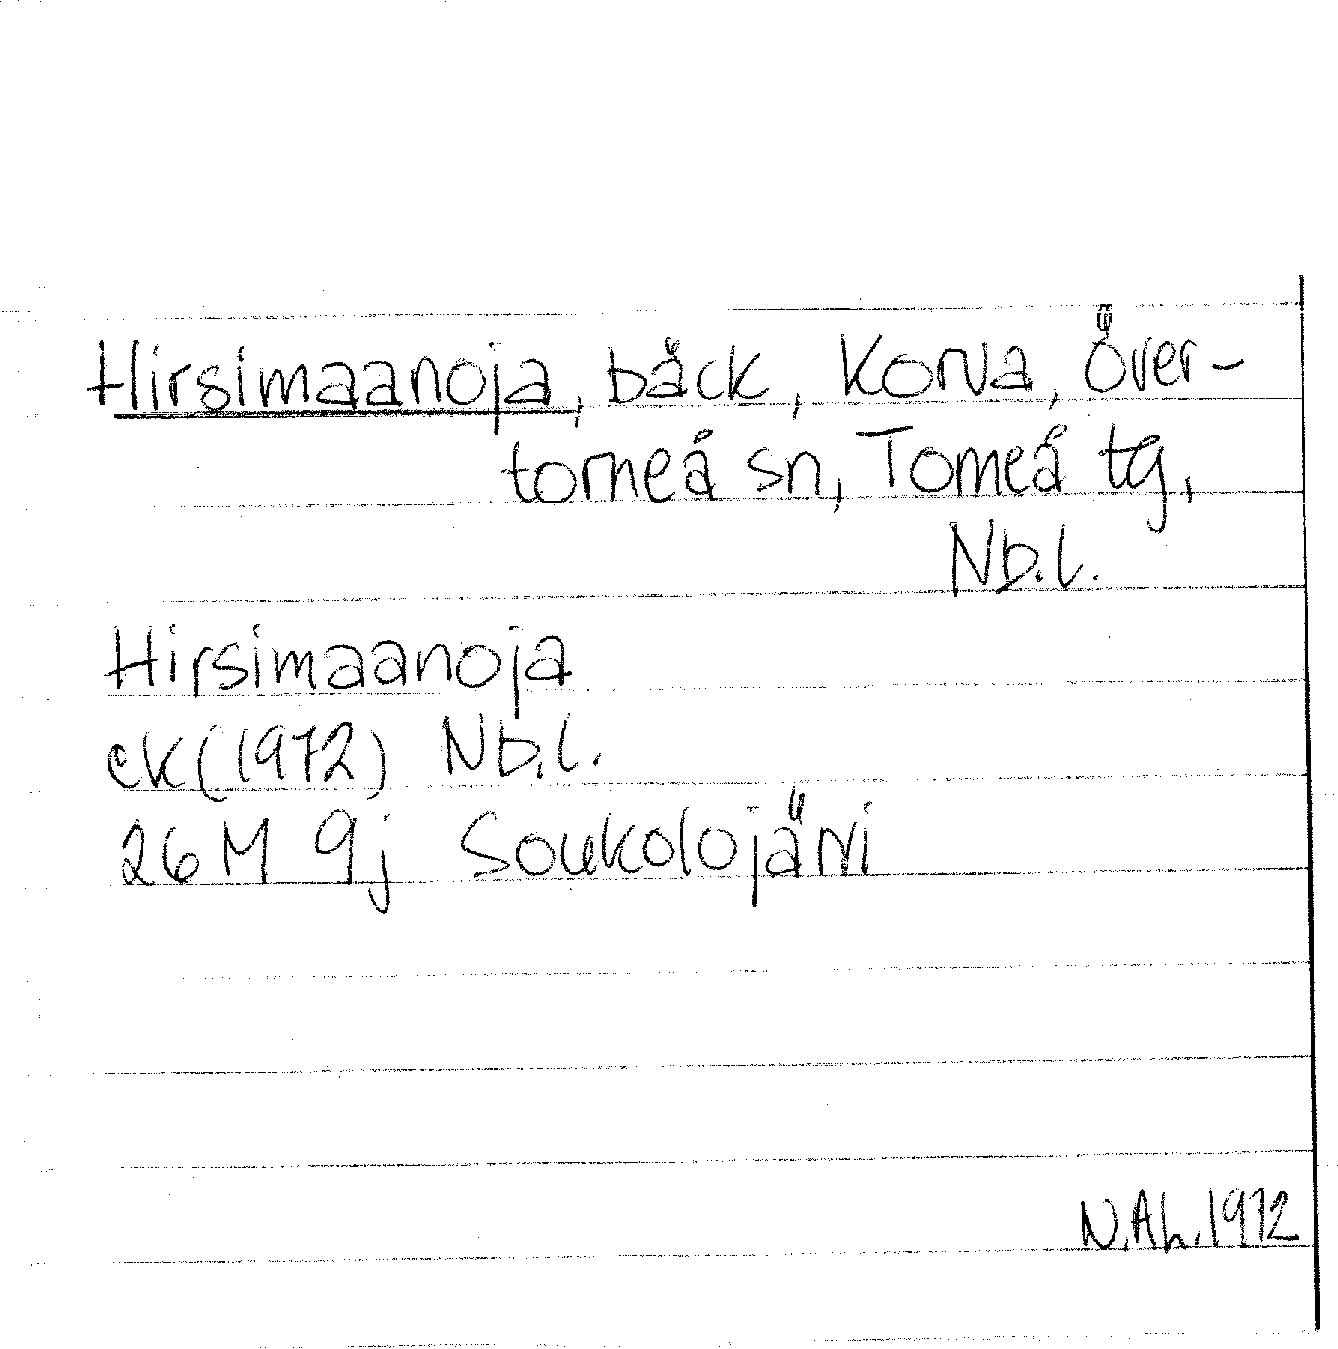 Hirsimaanoja, bäck, Korva, Över-
torneå sn, Torneå tg,
Nb.l.
Hirsimaanoja
ek(1972) Nb.l.
26 M 9j Soukolojärvi
N.Ah.1972